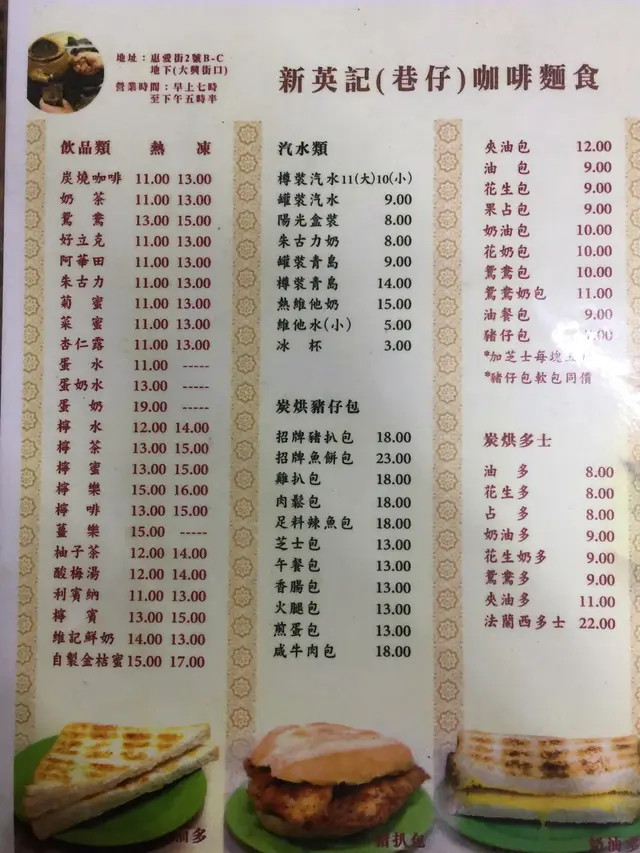 地址：惠愛街2號B-C
地下(大興街口)
營業時間：早上七時
至下午五時半
新英記(巷仔)咖啡麵食
飲品類 熱 凍
炭燒咖啡 11.00 13.00
奶 茶 11.00 13.00
鴛 鴦 13.00 15.00
好立克 11.00 13.00
阿華田 11.00 13.00
朱古力 11.00 13.00
菊 蜜 11.00 13.00
菜 蜜 11.00 13.00
杏仁露 11.00 13.00
蛋 水 11.00 -----
蛋奶水 13.00 -----
蛋 奶 19.00 -----
檸 水 12.00 14.00
檸 茶 13.00 15.00
檸 蜜 13.00 15.00
檸 樂 15.00 16.00
檸 啡 13.00 15.00
薑 樂 15.00 -----
柚子茶 12.00 14.00
酸梅湯 12.00 14.00
利賓納 11.00 13.00
檸 賓 13.00 15.00
維記鮮奶 14.00 13.00
自製金桔蜜 15.00 17.00
汽水類
樽裝汽水 11(大)10(小)
罐裝汽水 9.00
陽光盒裝 8.00
朱古力奶 8.00
罐裝青島 9.00
樽裝青島 14.00
熱維他奶 15.00
維他水(小) 5.00
冰 杯 3.00
炭烘豬仔包
招牌豬扒包 18.00
招牌魚餅包 23.00
雞扒包 18.00
肉鬆包 18.00
足料辣魚包 18.00
芝士包 13.00
午餐包 13.00
香腸包 13.00
火腿包 13.00
煎蛋包 13.00
咸牛肉包 18.00
夾油包 12.00
油 包 9.00
花生包 9.00
果占包 9.00
奶油包 10.00
花奶包 10.00
鴛鴦包 10.00
鴛鴦奶包 11.00
油餐包 9.00
豬仔包
*加芝士每塊
*豬仔包軟包同價
炭烘多士
油 多 8.00
花生多 8.00
占 多 8.00
奶油多 9.00
花生奶多 9.00
鴛鴦多 9.00
夾油多 11.00
法蘭西多士 22.00
油多
豬扒包
奶油多